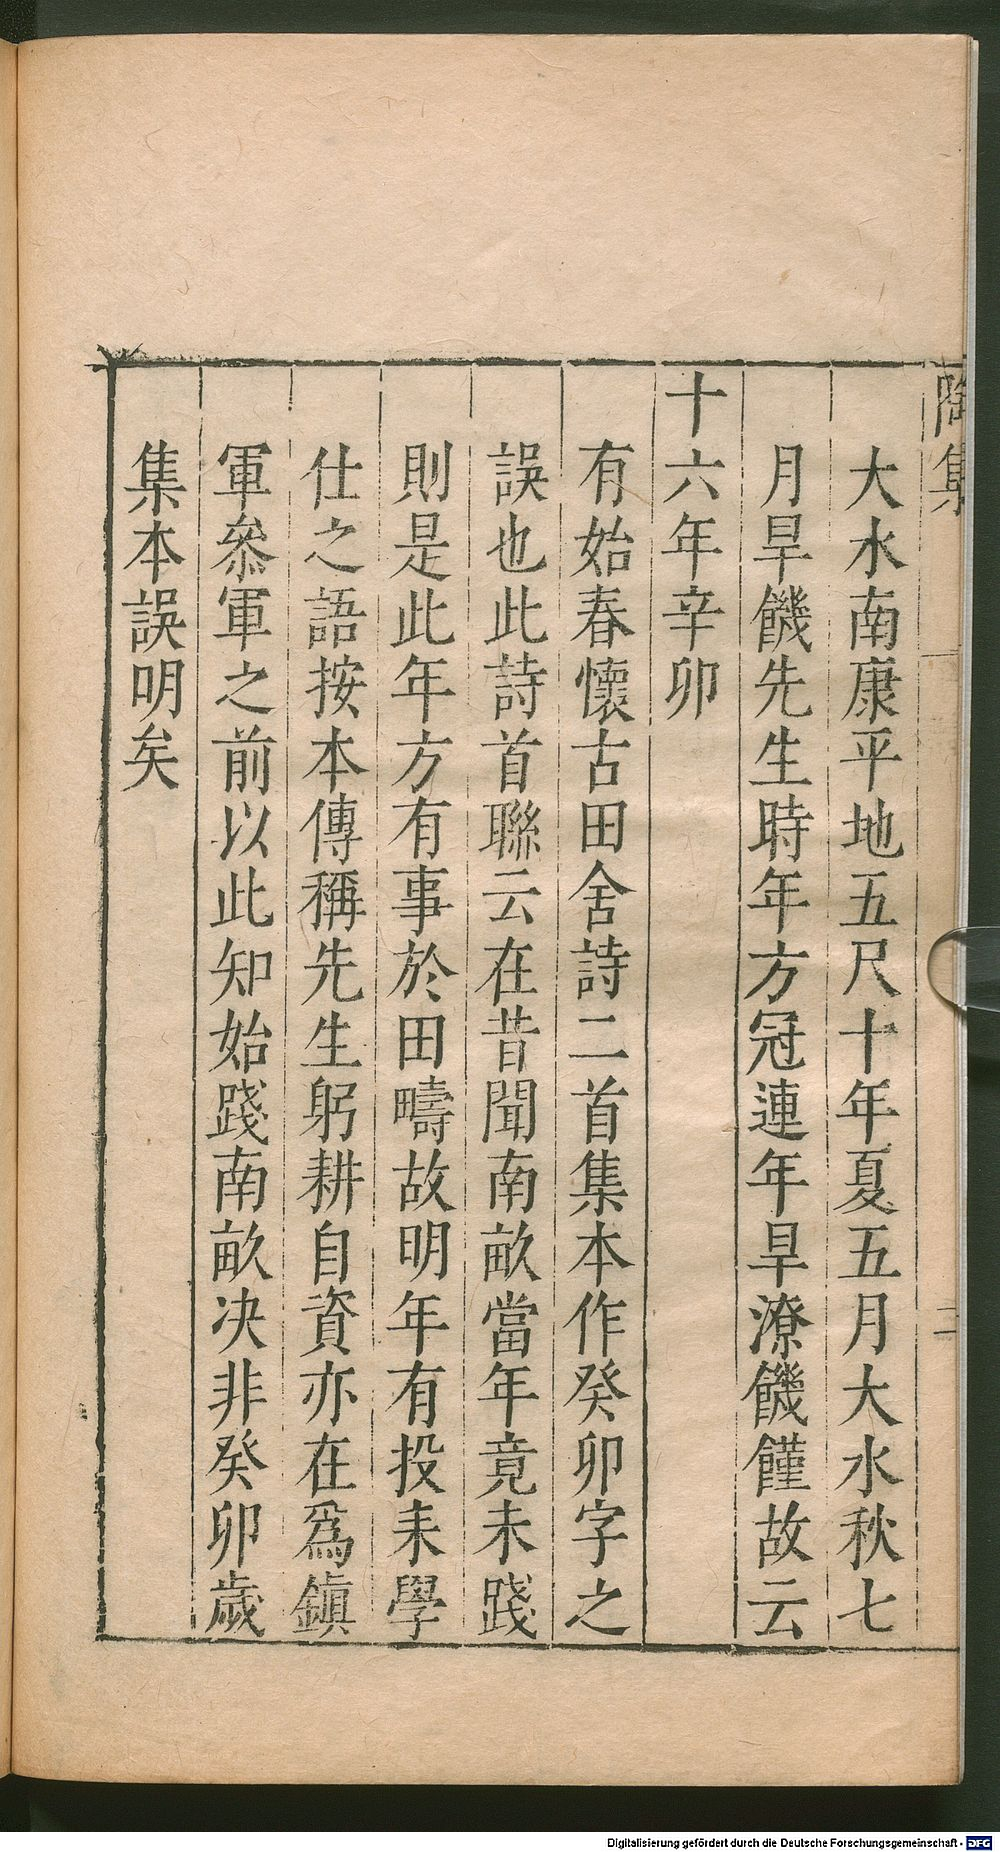 陶集
二
大水南康平地五尺十年夏五月大水秋七
月旱饑先生時年方冠連年旱潦饑饉故云
十六年辛卯
有始春懷古田舍詩二首集本作癸卯字之
誤也此詩首聯云在昔聞南畝當年竟未踐
則是此年方有事於田疇故明年有投耒學
仕之語按本傳稱先生躬耕自資亦在爲鎭
軍叅軍之前以此知始踐南畝决非癸卯歲
集本誤明矣
Digitalisierung gefördert durch die Deutsche Forschungsgemeinschaft - DFG